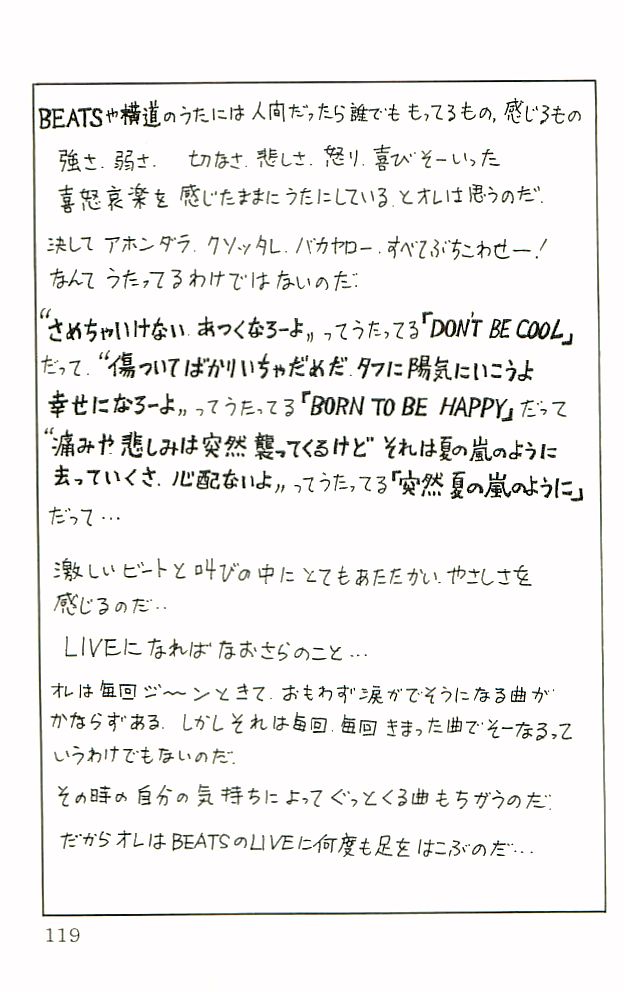 BEATSや横道のうたには人間だったら誰でももってるもの、感じるもの
強さ、弱さ、切なさ、悲しさ、怒り、喜びそーいった
喜怒哀楽を感じたままにうたにしている、とオレは思うのだ.
決してアホンダラ、クソッタレ、バカヤロー、すべてぶちこわせー!
なんてうたってるわけではないのだ.
“さめちゃいけない、あつくなろーよ„ってうたってる『DON'T BE COOL』
だって、“傷ついてばかりいちゃだめだ、タフに陽気にいこうよ
幸せになろーよ„ってうたってる『BORN TO BE HAPPY』だって
“痛みや悲しみは突然襲ってくるけどそれは夏の嵐のように
去っていくさ、心配ないよ„ってうたってる『突然夏の嵐のように』
だって…
激しいビートと叫びの中にとてもあたたかい、やさしさを
感じるのだ…
LIVEになればなおさらのこと…
オレは毎回ジ〜ンときて、おもわず涙がでそうになる曲が
かならずある、しかしそれは毎回、毎回きまった曲でそーなるって
いうわけでもないのだ.
その時の自分の気持ちによってぐっとくる曲もちがうのだ.
だからオレはBEATSのLIVEに何度も足をはこぶのだ…
119